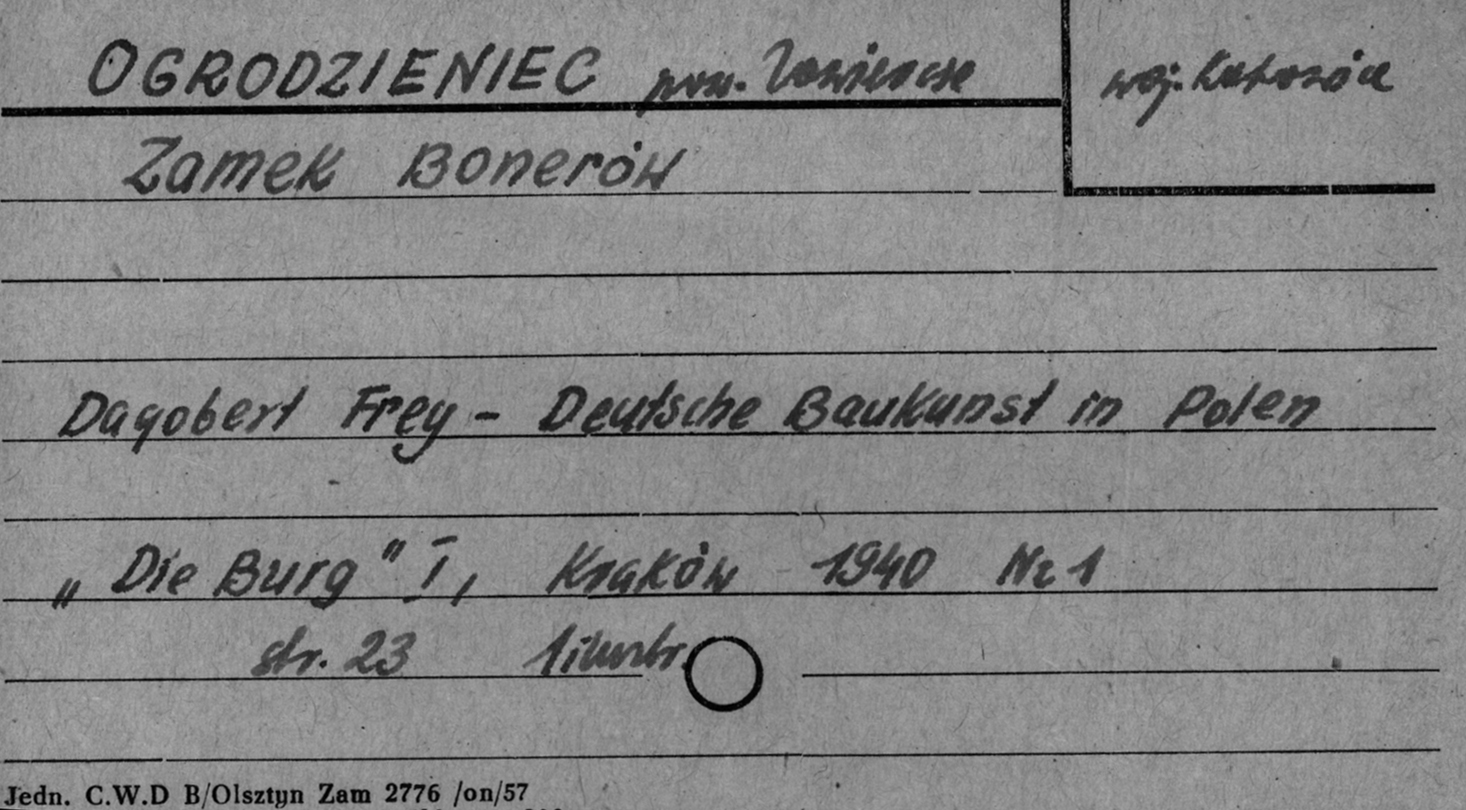 OGRODZIENIEC pow. Zawiercie
woj. Katowice
Zamek Bonerów
Dagobert Frey - Deutsche Baukunst in Polen
„Die Burg" I, Kraków 1940 Nr 1
str. 23 1 ilustr.
Jedn. C.W.D B/Olsztyn Zam 2776 /on/57